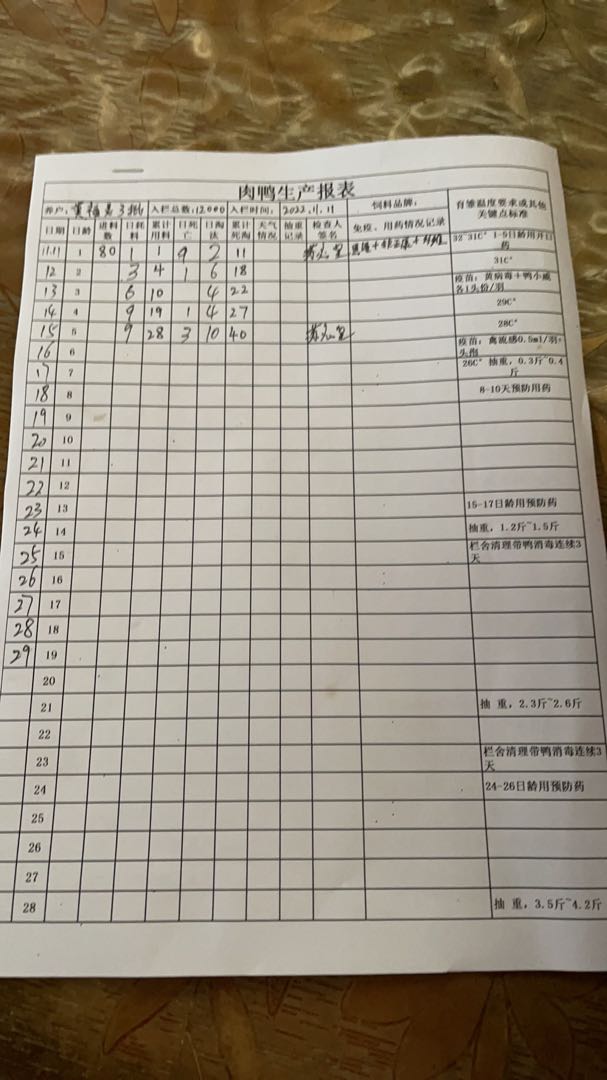 肉鸭生产报表
养户: 黄福基3批 入栏总数:12000 入栏时间: 2022.11.11 饲料品牌: 育雏温度要求或其他关键点标准
日期 日龄 进料数 日耗料 累计用料 日死亡 日淘汰 累计死淘 天气情况 抽重记录 检查人签名 免疫、用药情况记录
11.11 1 80 1 1 9 2 11 32~31C° 1-5日龄用开口药
12 2 3 4 1 6 18 31C°
13 3 6 10 4 22 疫苗: 黄病毒+鸭小减各1头份/羽
14 4 9 19 1 4 27 29C°
15 5 9 28 3 10 40 28C°
16 6 疫苗: 禽流感0.5ml/羽+头孢
17 7 26C° 抽重, 0.3斤~0.4斤
18 8 8-10天预防用药
19 9
20 10
21 11
22 12
23 13 15-17日龄用预防药
24 14 抽重, 1.2斤~1.5斤
25 15 栏舍清理带鸭消毒连续3天
26 16
27 17
28 18
29 19
20
21 抽 重, 2.3斤~2.6斤
22
23 栏舍清理带鸭消毒连续3天
24 24-26日龄用预防药
25
26
27
28 抽 重, 3.5斤~4.2斤